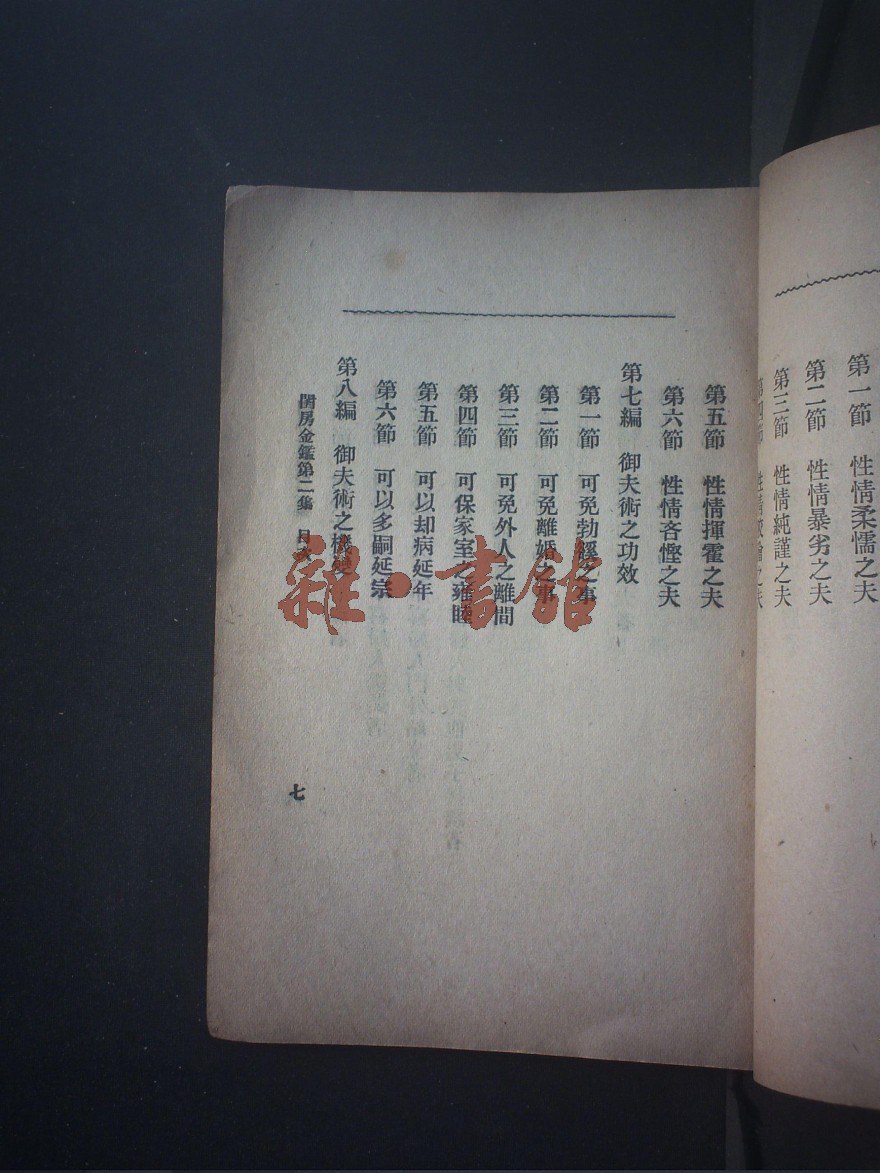 第一節 性情柔懦之夫
第二節 性情暴劣之夫
第三節 性情純謹之夫
第四節 性情狡獪之夫
第五節 性情揮霍之夫
第六節 性情吝慳之夫
第七編 御夫術之功效
第一節 可免勃谿之事
第二節 可免離婚之事
第三節 可免外人之離間
第四節 可保家室之雍睦
第五節 可以却病延年
第六節 可以多嗣延宗
第八編 御夫術之機變
閨房金鑑第二集 目次
七
雜·書館